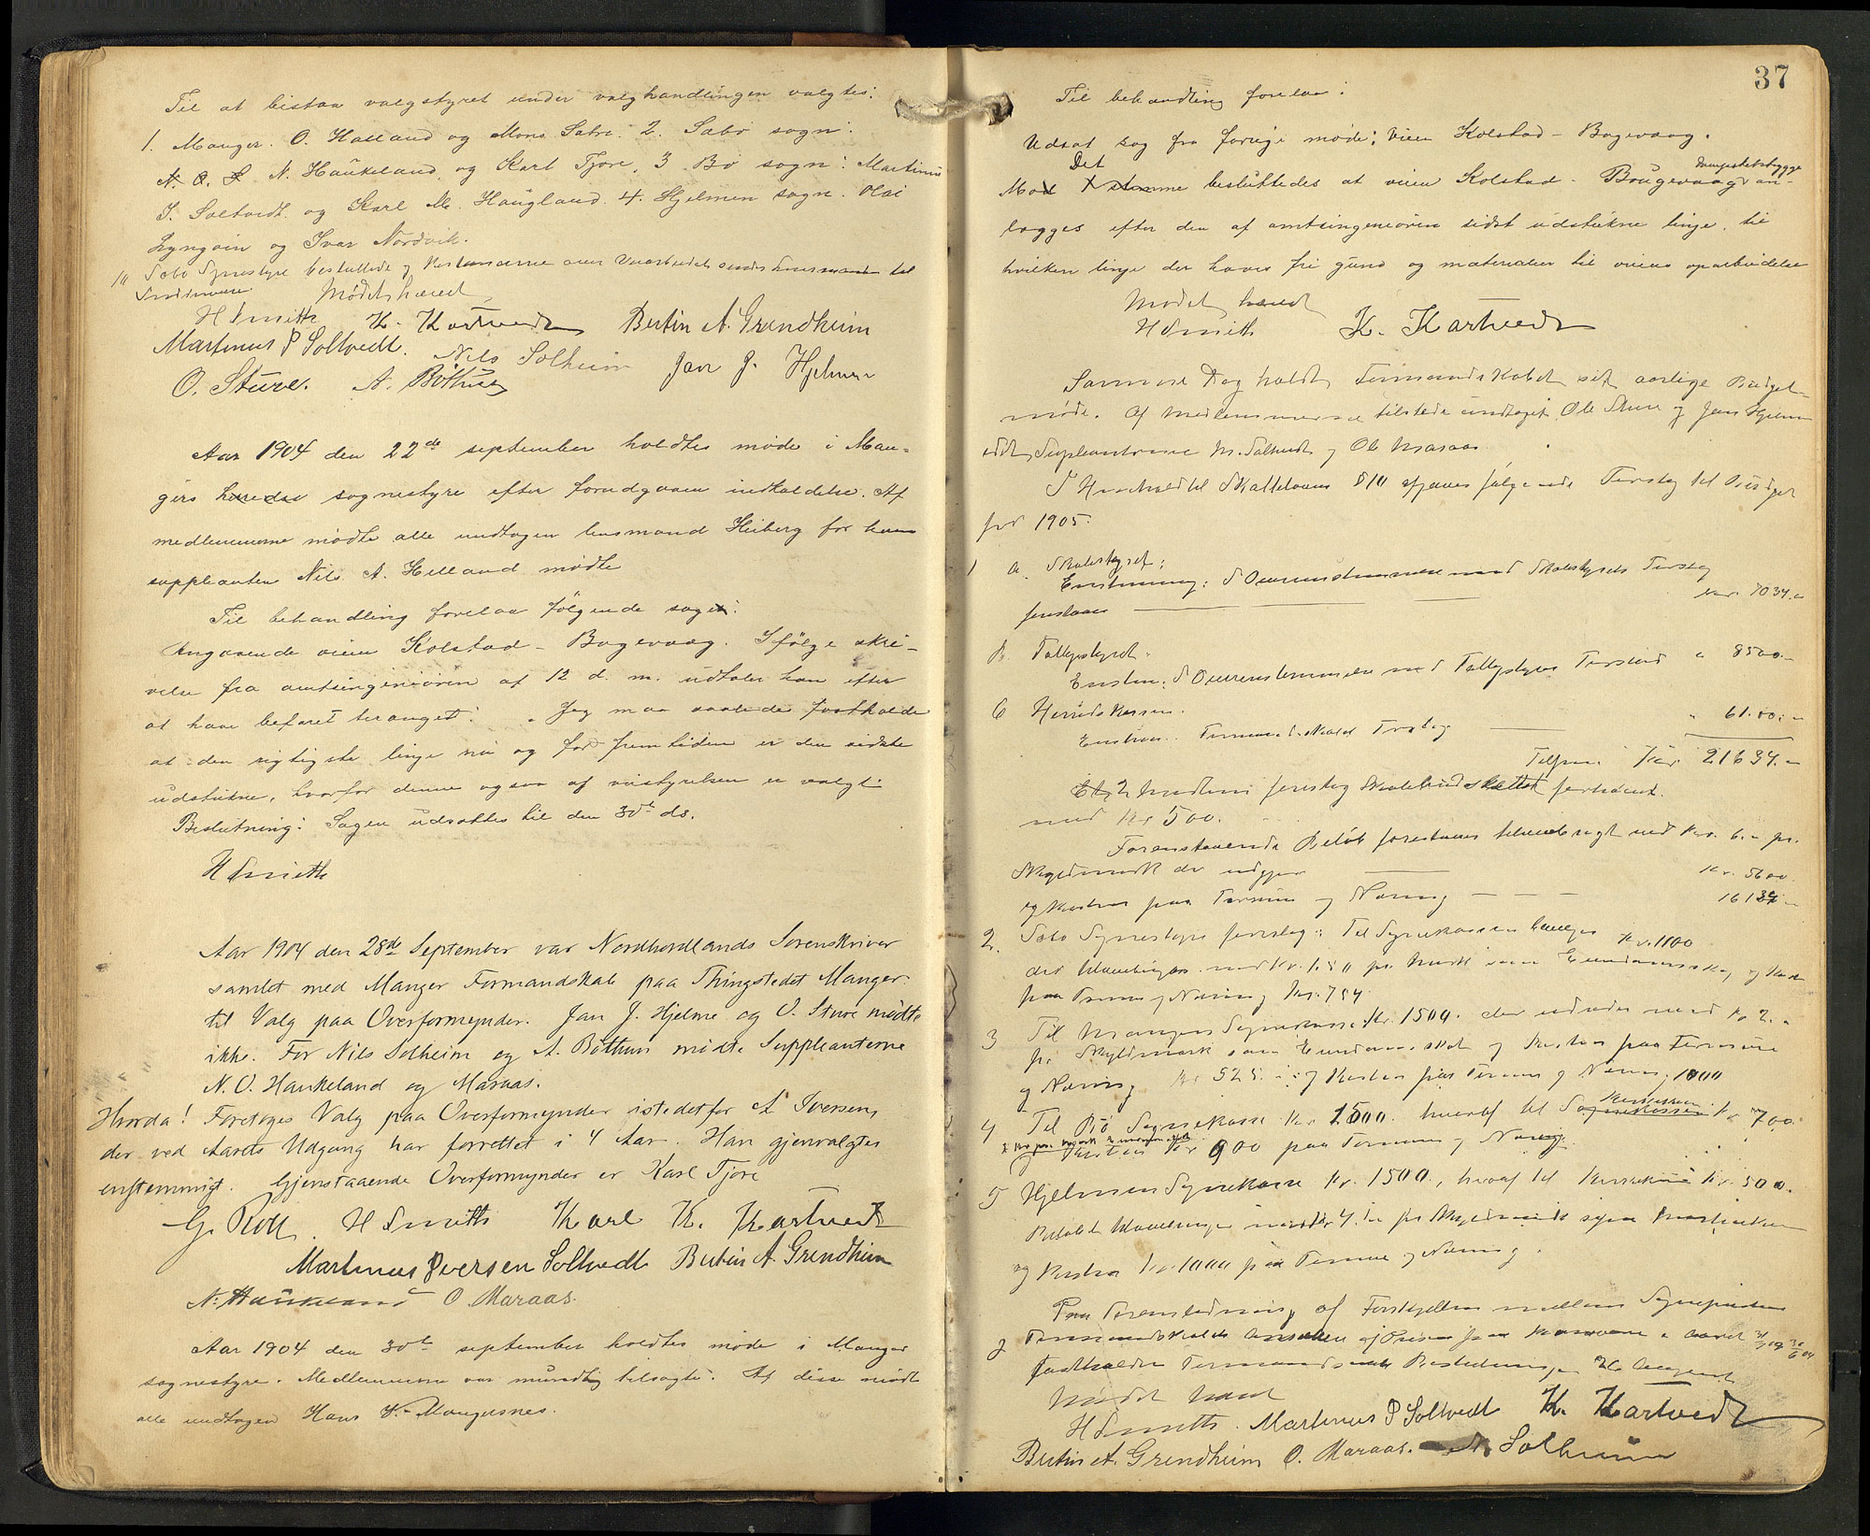 Til at bistaa valgstyret under valghandlingen valgtes:
1. Manger. O. Halland og Mons Sætre. 2. Sæbø sogn:
N. O. S N. Haukeland, og Karl Tjore, 3 Bø sogn: Martinus
I. Soltvedt og Karl M. Haugland. 4. Hjelmen sogn. Olai
Lyngøin og Ivar Nordvik.
10 Sæbø Sognestyre besluttede
Mødet hævet
H Smith K. Kartvedt Bertin A. Grendheim
Martinus P Soltvedt. Nils Solheim Jan J. Hjelme
O. Sture. A. Bøthun
Aar 1904 den 22de september holdtes møde i Man-
gers herreds sognestyre efter forudgaaen indkaldelse. Af
medlemmerne mødte alle undtagen lensmand Heiberg for ham
suppleanten Nils A. Helland mødte
Til behandling forelaa følgende sager:
Angaaende veien Kolstad - Bogevaag. Ifølge skri-
velse fra amtsingeniøren af 12 d. m. udtaler han efter
at have befaret terænget: "Jeg maa saaledes fastholde
at den rigtigste linje nu og for fremtiden er den sidste
udstukne, hvorfor denne ogsaa af veistyrelsen er valgt"
Beslutning: Sagen udsættes til den 30te ds.
H Smith
Aar 1904 den 28de September var Nordhordlands Sorenskriver
samlet med Manger Formandskab paa Thingstedet Manger
til Valg paa Overformynder. Jan J. Hjelme og O. Sture mødte
ikke. For Nils Solheim og A. Bøthun mødte Suppleanterne
N. O. Haukeland og Maraas.
Hvorda! Foretoges Valg paa Overformynder istedetfor A. Iversen,
der ved Aarets Udgang har forrettet i 4 Aar. Han gjenvalgtes
enstemmigt. Gjenstaaende Overformynder er Karl Tjore
G. Roll. H Smith Karl K. Kartvedt
Martinus Iversen Soltvedt Bertin A. Grendheim
N. Haukeland O. Maraas.
Aar 1904 den 30te september holdtes møde i Manger
sognestyre. Medlemmerne var mundtlig tilsagte. Af disse mødte
alle undtagen Hans Mangersnes.
37
Til behandling forelaa:
Udsat sag fra forrige møde: Veien Kolstad - Bogevaag.
Mod Det stemme besluttedes at veien Kolstad - Bougevaags dampskibsbrygge an-
lægges efter den af amtsingeniøren sidst udstukne linje, til
hvilken linje der haves fri grund og materialier til veiens oparbeidelse
Mødet hævet
H Smith K. Kartvedt
Samme Dag holdt Formandskabet sit aarlige Budget-
møde. Af Medlemmerne tilstede undtaget Ole Sture og Jan Hjelme
Suppleanterne M. Soltvedt og Ole Maraas
I Henhold til Skatteloven § 10 afgaves følgende Forslag til Budget
for 1905.
1 a. Skolestyret:
Enstemmig: I Overensstemmelse med Skolestyrets Forslag
foreslaaes Kr. 7034.-
B. Fattigstyret.
Enstem: I Overensstemmelse med Fattigstyrets Forslag " 8500.-
C Herredskassen.
Enstem. Formandskabet Forslag " 6100.-
Tilsam. Kr. 21634.-
2 Medlem. foreslog forhøiet
med Kr 500.
Forenstaaende Beløb foreslaaes tilveiebragt med Kr. 6.- pr.
Skyldmark der udgjør Kr. 5600.
og Resten paa Formue og Næring 16134.-
2. Sæbø Sognestyre foreslog: Til Sognekassen bevilges Kr. 1100
der udredes med Kr. pr. Mark som Eiendomsskat og Resten
paa Formue og Næring Kr. 754
3 Til Mangers Sognekasse Kr. 1500. der udredes med Kr 2.-
pr. Skyldmark som Eiendomsskat og Resten paa Formue
og Næring Kr 525. og Resten paa Formue og Næring 1000
4 Til Bø Sognekasse Kr. 1500. hvoraf til Sognekassen Kr 700.
Resten Kr 900 paa Formue og Næring.
5 Hjelmen Sognekasse Kr. 1500., hvoraf til Kr. 500.
og Resten Kr. 1000 paa Formue og Næring.
Paa Foranledning af
fastholder Formandskabet Beslutning
Mødet hævet
H Smith. Martinus P Soltvedt K. Kartvedt
Bertin A. Grendheim O. Maraas. N. Solheim